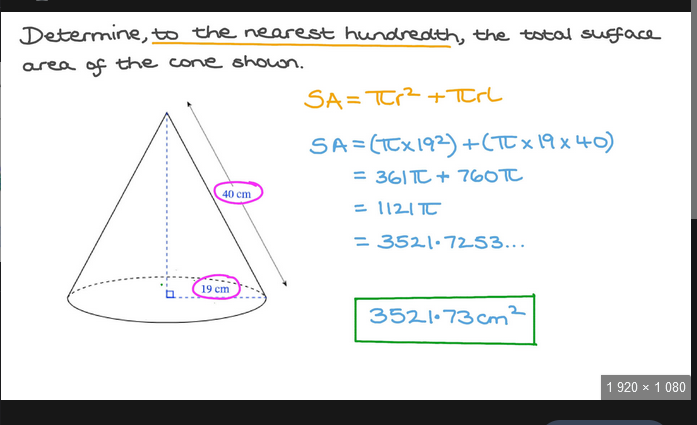 Determine, to the nearest hundredth, the total surface
area of the cone shown.
SA = πr² + πrL
SA = (π × 19²) + (π × 19 × 40)
= 361π + 760π
= 1121π
= 3521.7253...
40 cm
19 cm
3521.73 cm²
1 920 × 1 080